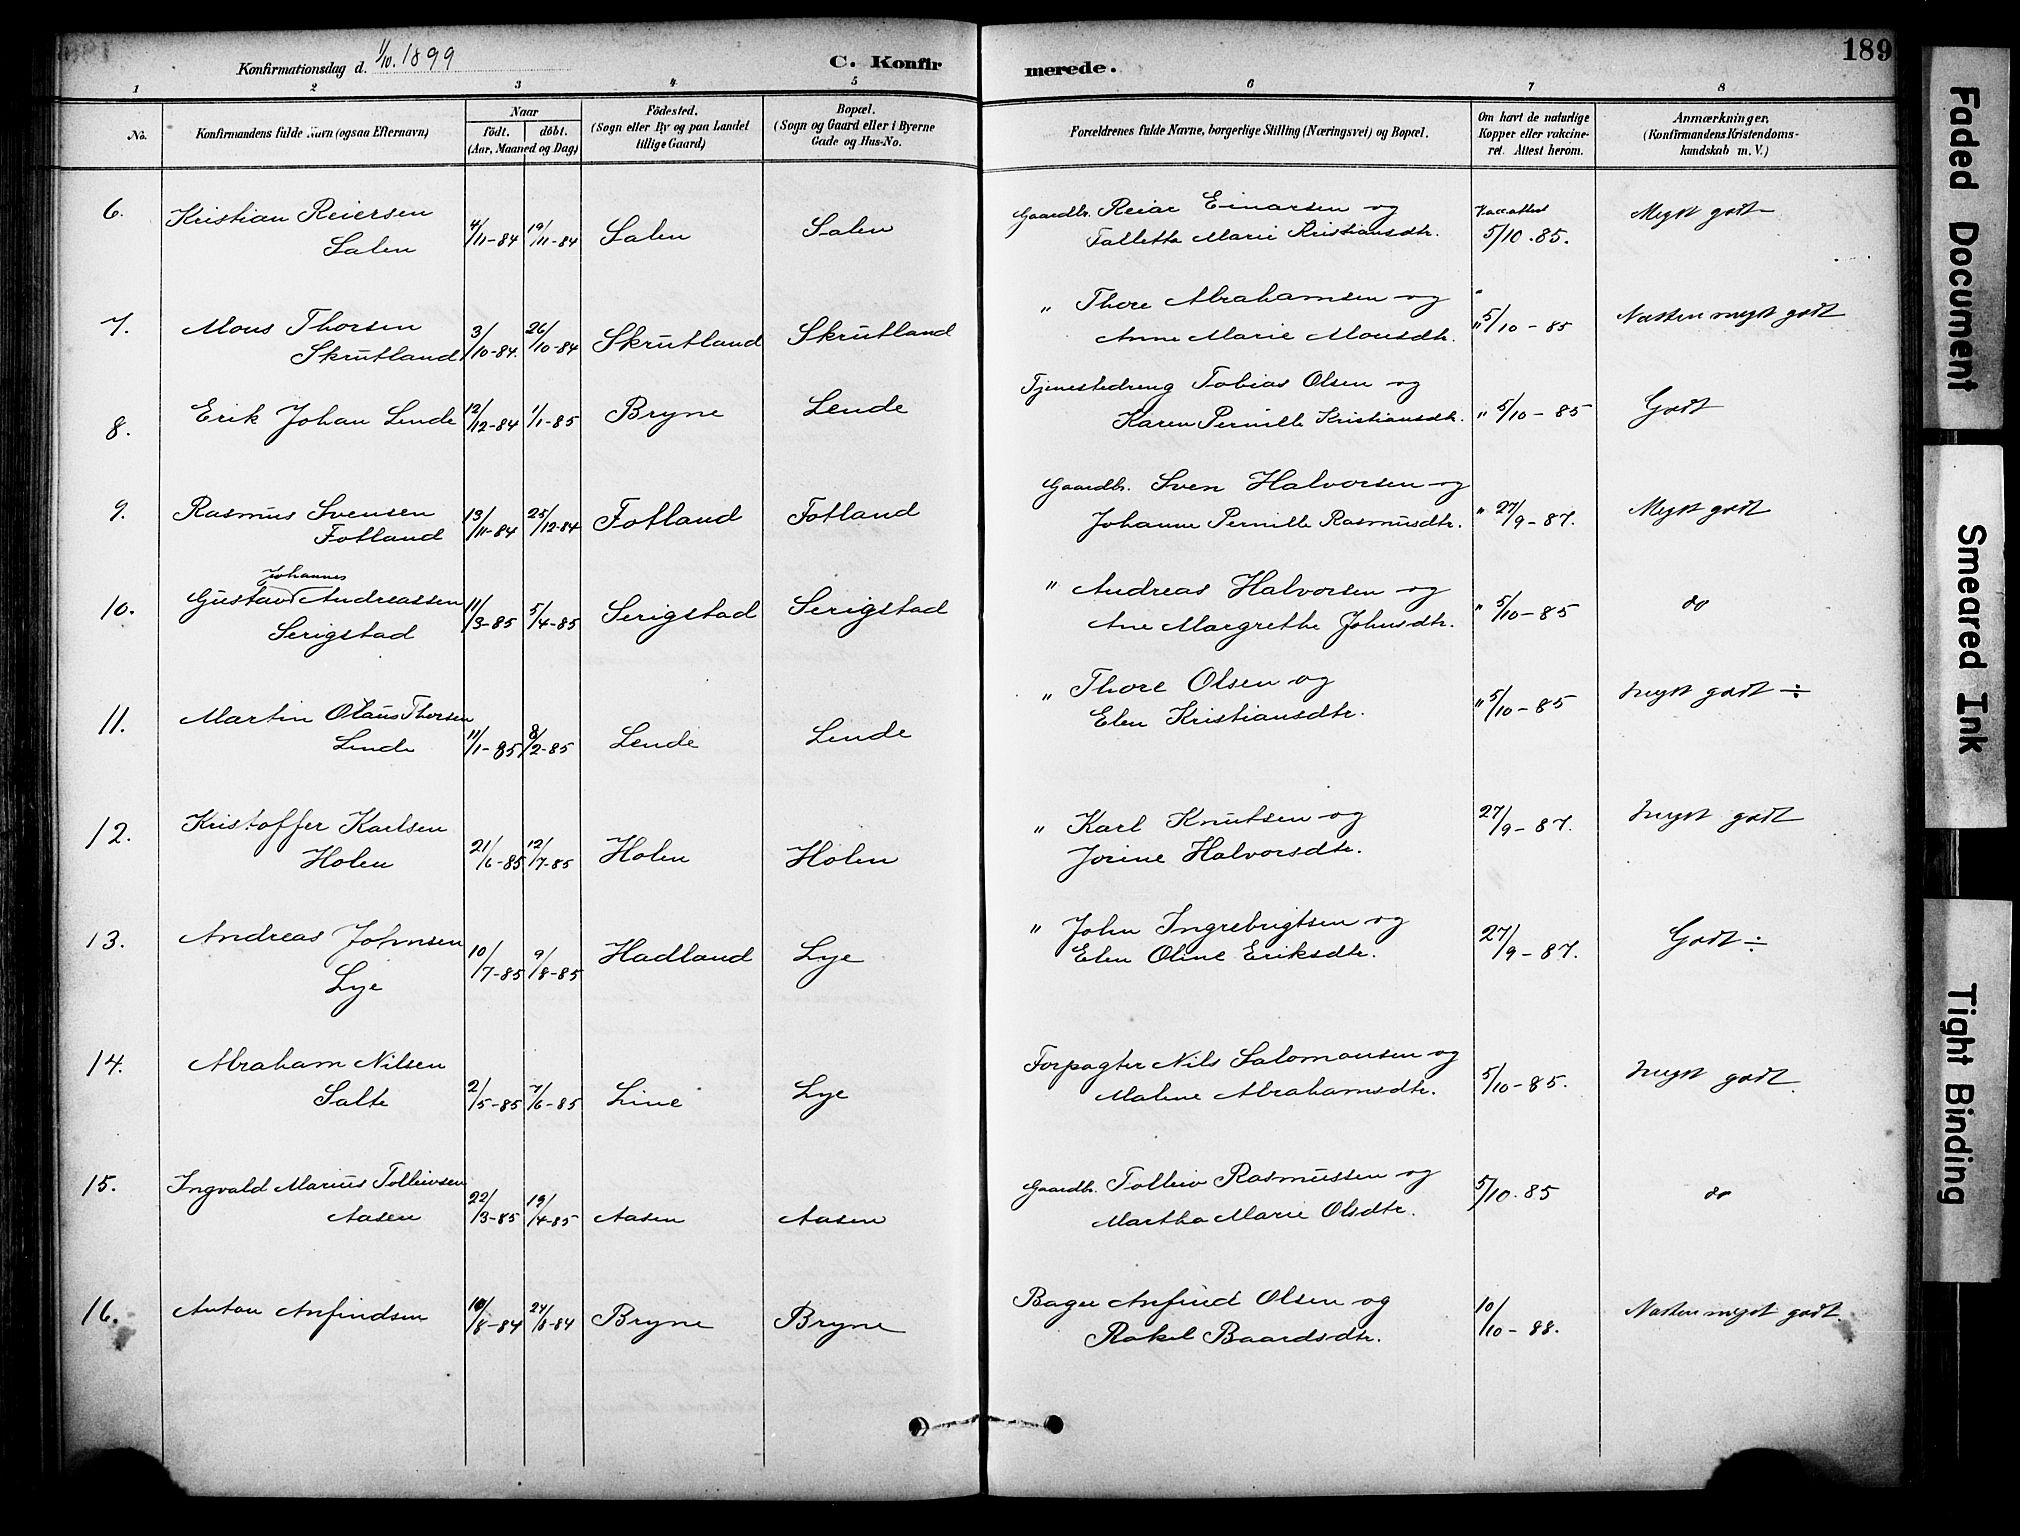 Konfirmationsdag d. 1/10. 1899
C. Konfirmerede.
189
1 2 3 4 5 6 7 8
No.
Konfirmandens fulde Navn (ogsaa Efternavn)
Naar
födt. döbt.
(Aar, Maaned og Dag)
Födested.
(Sogn eller By og paa Landet
tillige Gaard)
Bopæl.
(Sogn og Gaard eller i Byerne
Gade og Hus-No.
Forældrenes fulde Navne, borgerlige Stilling (Næringsvei) og Bopæl.
Om havt de naturlige
Kopper eller vakcine-
ret. Attest herom.
Anmærkninger,
(Konfirmandens Kristendoms-
kundskab m. V.)
6. Kristian Reiersen Gaardbr. Reiar Einarsen og Vaccattest Meget godt
Salen 4/11-84 19/11-84 Salen Salen Talletta Marie Kristiansdtr. 5/10.85.
7. Mons Thorsen " Thore Abrahamsen og "
Skrutland 3/10-84. 26/10-84 Skrutland Skrutland Anne Marie Monsdtr. " 5/10-85 Næsten meget godt
8. Erik Johan Lende 12/12-84 1/1-85 Bryne Lende Tjenestedreng Tobias Olsen og
Karen Pernille Kristiansdtr. " 5/10-85 Godt
9. Rasmus Svensen Gaardbr. Sven Halvorsen og
Fotland 13/11-84 25/12-84 Fotland Fotland Johanne Pernille Rasmusdtr. " 27/9-87. Meget godt
Johannes
10. Gustav Andreassen " Andreas Halvorsen og
Serigstad 11/3-85 5/4-85 Serigstad Serigstad Ane Margrethe Johnsdtr. " 5/10-85 do
11. Martin Olaus Thorsen " Thore Olsen og
Lende 11/1-85 8/2-85 Lende Lende Elen Kristiansdtr. " 5/10-85 meget godt ÷
12. Kristoffer Karlsen " Karl Knutsen og
Holen 21/6-85 12/7-85 Holen Holen Jorine Halvorsdtr. 27/9-87. meget godt
13. Andreas Johnsen " John Ingrebrigtsen og
Lye 10/7-85 9/8-85 Hadland Lye Elen Oline Eriksdtr. 27/9-87. Godt ÷
14. Abraham Nilsen Forpagter Nils Salomonsen og
Salte 2/5-85 7/6-85 Line Lye Malene Abrahamsdtr. 5/10-85. meget godt
15. Ingvald Marius Tolleivsen Gaardbr. Tolleiv Rasmussen og
Aasen 22/3-85 19/4-85 Aasen Aasen Martha Marie Olsdtr. 5/10.85 do
16. Anton Anfindsen 10/8-84 24/8-84 Bryne Bryne Bager Anfind Olsen og
Rakel Baardsdtr. 10/10-88. Næsten meget godt.
Faded Document
Smeared Ink
Tight Binding